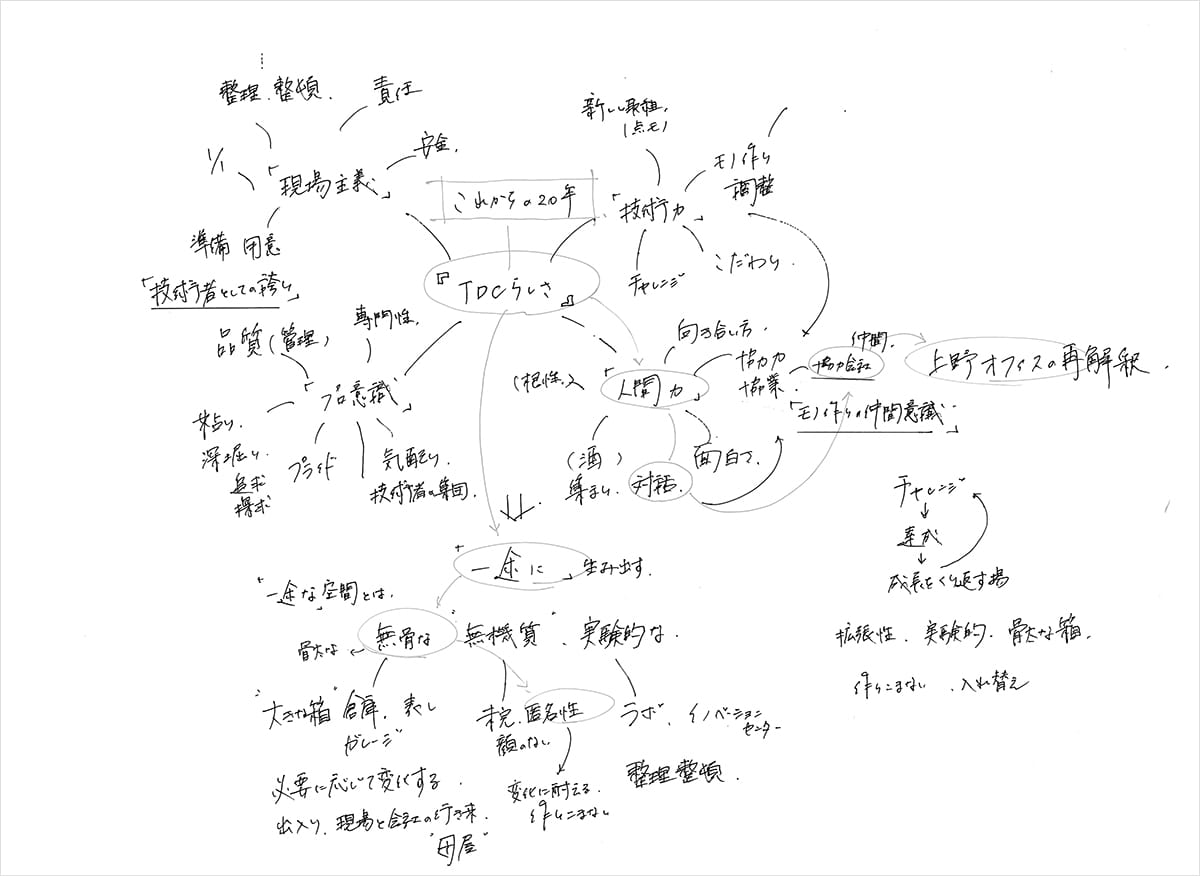 整理、整頓、
責任
1/1
「現場主義」
安全、
準備 用意
「技術者としての誇り」
これからの20年
『TDCらしさ』
新しい取組、
(点モ)
モノ作り
調整
「技術力」
チャレンジ
こだわり、
品質(管理)
専門性、
「プロ意識」
粘り、
深堀り、
追求
探求
プライド
気配り、
技術者の集団、
向き合い方、
(根性、)
「人間力」
協力力
協業
協力会社
仲間、
上野オフィスの再解釈、
「モノ作りの仲間意識」
(酒)
集まり、
対話、
面白さ、
チャレンジ
達成
成長をくり返す場
「一途に」生み出す、
「一途な」空間とは、
骨太な
無骨な
"無機質"、実験的な、
拡張性、実験的、骨太な箱、
作りこまない、入れ替え
"大きな箱" 倉庫、表し
ガレージ
匿名性
顔のない
ラボ、イノベーション
センター
必要に応じて変化する、
出入り、現場と会社の行き来、
"母屋"
変化に耐える、
作りこまない
整理整頓、